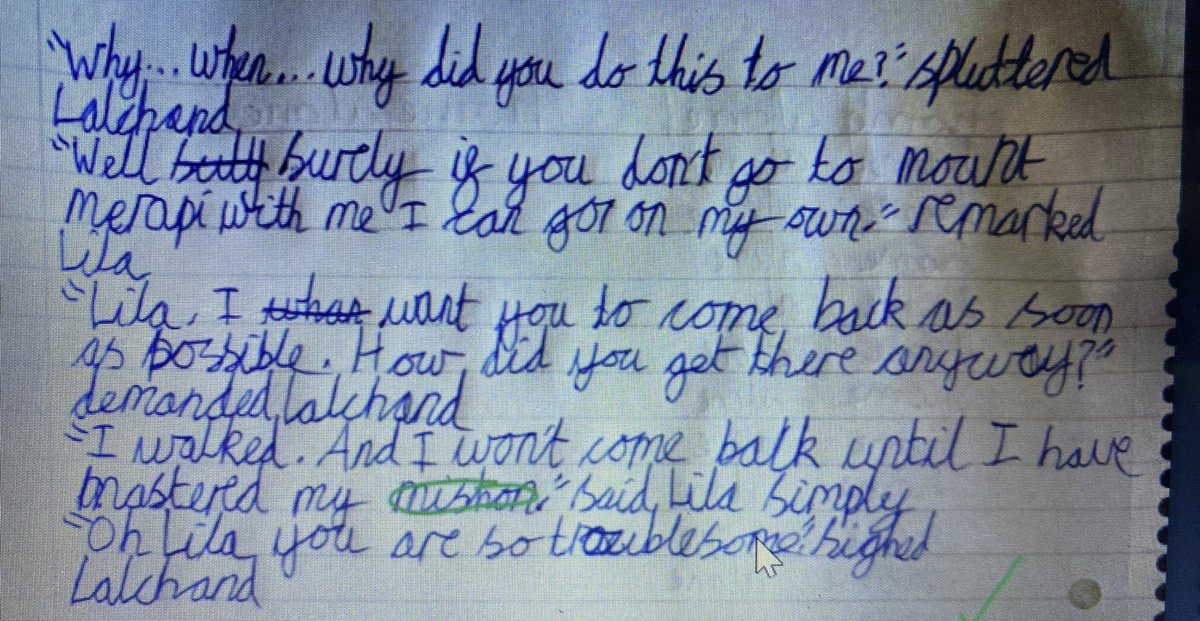 "Why... when... why did you do this to me?" spluttered
Lalchand
"Well surely if you don't go to mount
merapi with me I can go on my own." remarked
Lila
"Lila, I whan want you to come back as soon
as possible. How did you get there anyway?"
demanded Lalchand
"I walked. And I won't come back until I have
mastered my mishon." said Lila simply
"Oh Lila you are so troublesome." sighed
Lalchand